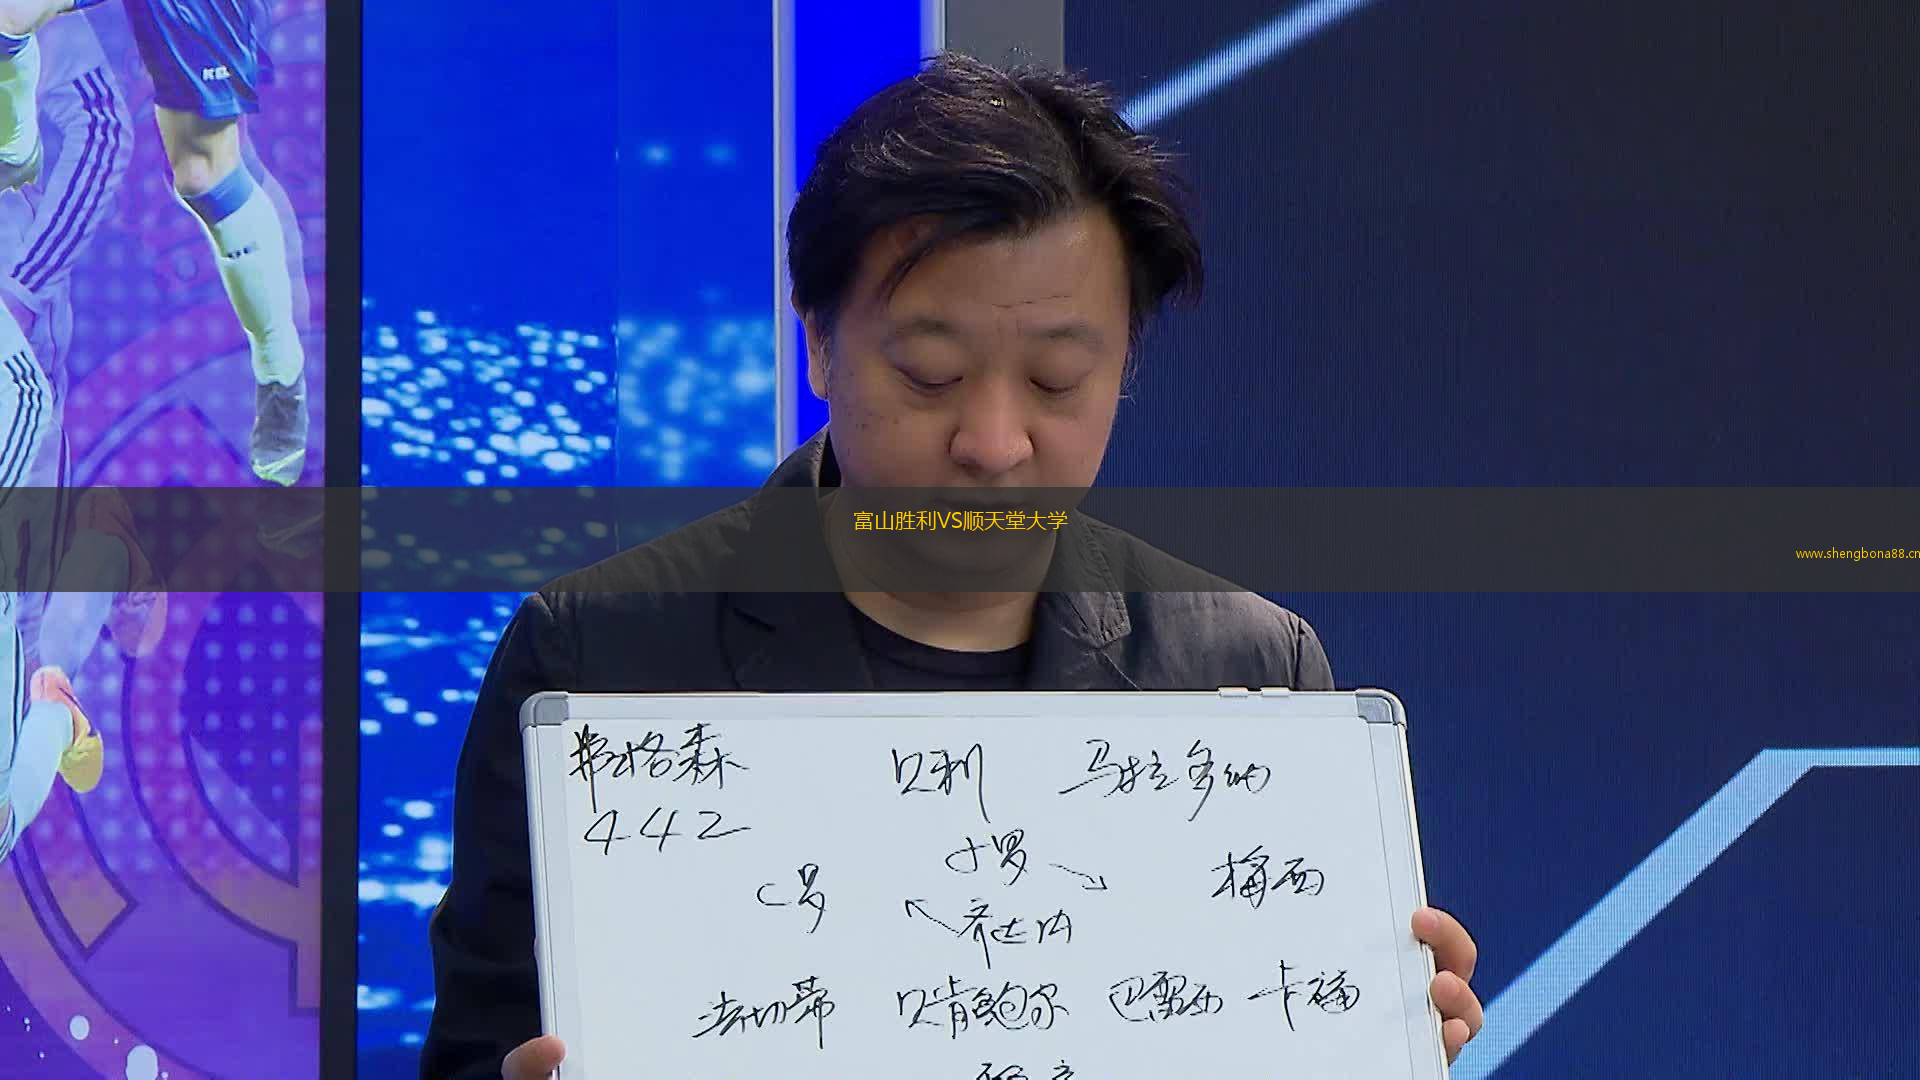 KEL
富山胜利VS顺天堂大学
www.shengbona88.cn
弗格森 贝利 马拉多纳
442
小罗
C罗 梅西
齐达内
法切蒂 贝肯鲍尔 巴雷西 卡福